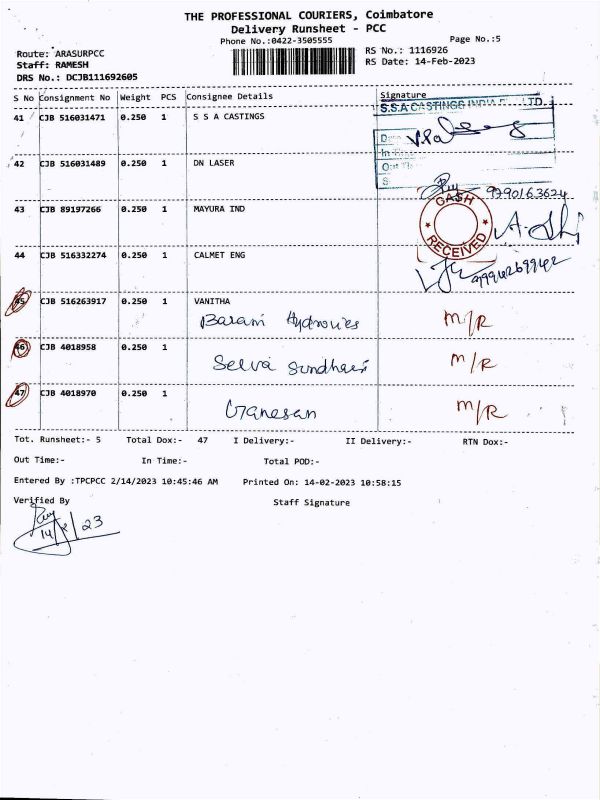 THE PROFESSIONAL COURIERS, Coimbatore
Delivery Runsheet - PCC
Phone No.:0422-3505555
Page No.:5
Route: ARASURPCC
RS No.: 1116926
Staff: RAMESH
RS Date: 14-Feb-2023
DRS No.: DCJB111692605
S No Consignment No Weight PCS Consignee Details Signature
S.S.A CASTINGS INDIA LTD.
41 CJB 516031471 0.250 1 S S A CASTINGS
42 CJB 516031489 0.250 1 DN LASER
9790163624
43 CJB 89197266 0.250 1 MAYURA IND
CASH RECEIVED
44 CJB 516332274 0.250 1 CALMET ENG
45 CJB 516263917 0.250 1 VANITHA
M/R
46 CJB 4018958 0.250 1
Selva Sundhari M/R
47 CJB 4018970 0.250 1
Ganesan M/R
Tot. Runsheet:- 5 Total Dox:- 47 I Delivery:- II Delivery:- RTN Dox:-
Out Time:- In Time:- Total POD:-
Entered By :TPCPCC 2/14/2023 10:45:46 AM Printed On: 14-02-2023 10:58:15
Verified By Staff Signature
14/2/23